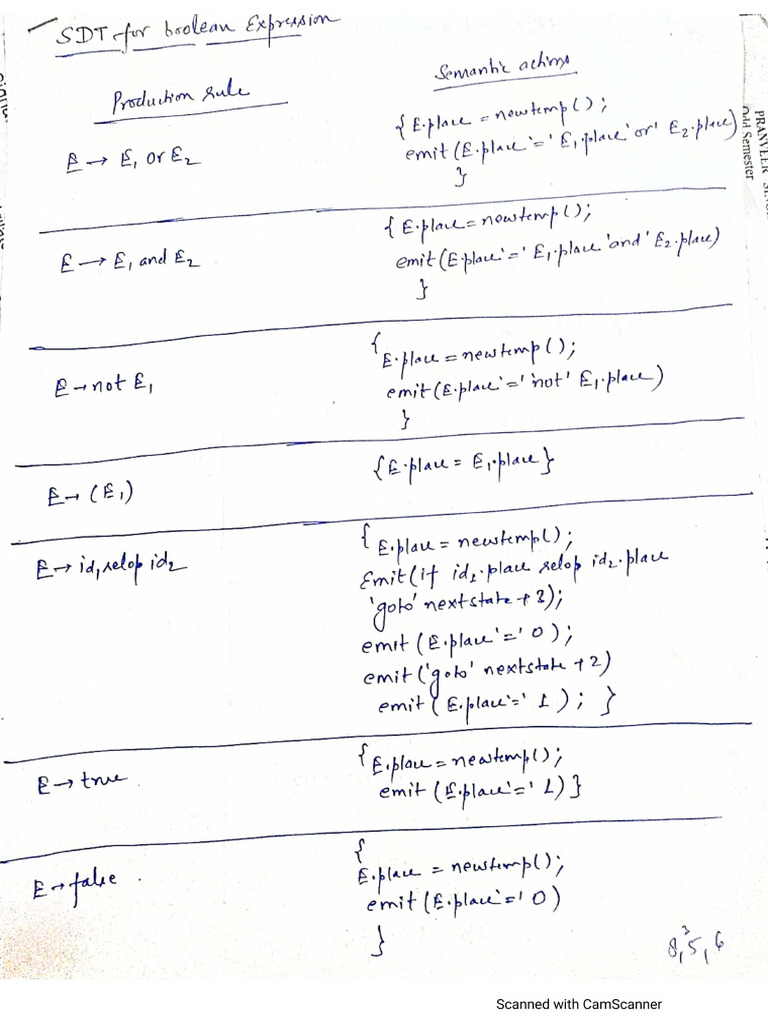 SDT for boolean Expression
Production rule
Semantic actions
E → E1 or E2
{ E.place = newtemp();
emit (E.place '=' E1.place 'or' E2.place)
}
E → E1 and E2
{ E.place = newtemp();
emit (E.place '=' E1.place 'and' E2.place)
}
E → not E1
{
E.place = newtemp();
emit (E.place '=' 'not' E1.place)
}
E → (E1)
{E.place = E1.place}
E → id1 relop id2
{ E.place = newtemp();
Emit (if id1.place relop id2.place
'goto' nextstate + 3);
emit (E.place '=' 0);
emit ('goto' nextstate + 2)
emit (E.place '=' 1); }
E → true
{ E.place = newtemp();
emit (E.place '=' 1)}
E → false
{
E.place = newtemp();
emit (E.place '=' 0)
}
8, 3, 5, 6
PRANVEER
Odd Semester
Scanned with CamScanner